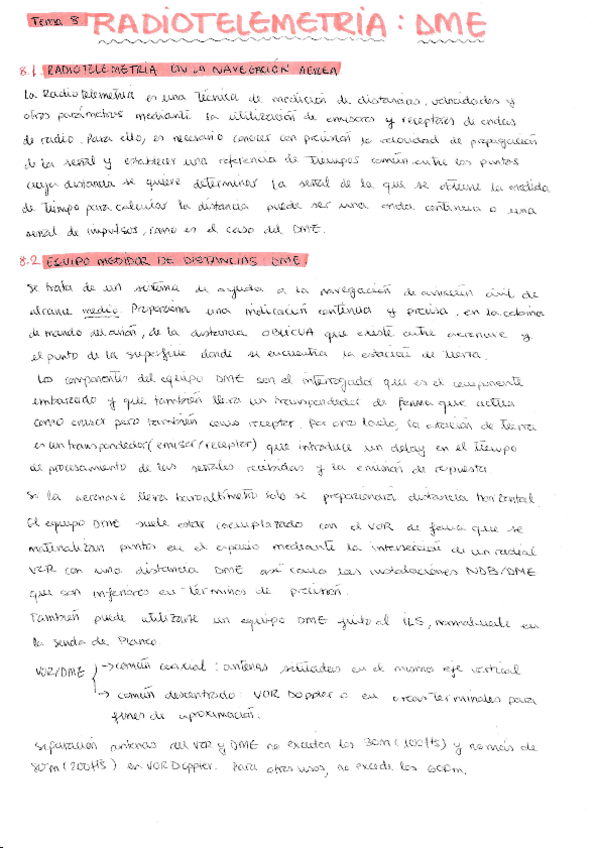 Tema 8 RADIOTELEMETRIA : DME
8.1. RADIOTELEMETRIA EN LA NAVEGACIÓN AEREA
La Radiotelemetria es una técnica de medición de distancias, velocidades y
otros parámetros mediante la utilización de emisores y receptores de ondas
de radio. Para ello, es necesario conocer con precisión la velocidad de propagación
de la señal y establecer una referencia de tiempos común entre los puntos
cuya distancia se quiere determinar. La señal de la que se obtiene la medida
de tiempo para calcular la distancia puede ser una onda continua o una
señal de impulsos, como es el caso del DME.
8.2 EQUIPO MEDIDOR DE DISTANCIAS: DME
Se trata de un sistema de ayuda a la navegación de aviación civil de
alcance medio. Proporciona una indicación continua y precisa, en la cabina
de mando del avión, de la distancia OBLICUA que existe entre aeronave y
el punto de la superficie donde se encuentra la estación de tierra.
Los componentes del equipo DME son el interrogador que es el componente
embarcado y que también lleva un transpondedor de forma que actúa
como emisor pero también como receptor. Por otro lado, la estación de tierra
es un transpondedor (emisor/receptor) que introduce un delay en el tiempo
de procesamiento de las señales recibidas y la emisión de respuesta
Si la aeronave lleva baroaltímetro solo se proporcionará distancia horizontal.
El equipo DME suele estar coemplazado con el VOR de forma que se
materializan puntos en el espacio mediante la intersección de un radial
VOR con una distancia DME así como las instalaciones NDB/DME
que son inferiores en términos de precisión.
También puede utilizarse un equipo DME junto al ILS, normalmente en
la senda de planeo.
VOR/DME → común coaxial: antenas situadas en el mismo eje vertical
→ común descentrado: VOR Doppler o en áreas terminales para
fines de aproximación.
Separación antenas del VOR y DME no exceden los 30m (100fts) y no más de
80m (200fts) en VOR Doppler. Para otros usos, no excede los 600m.